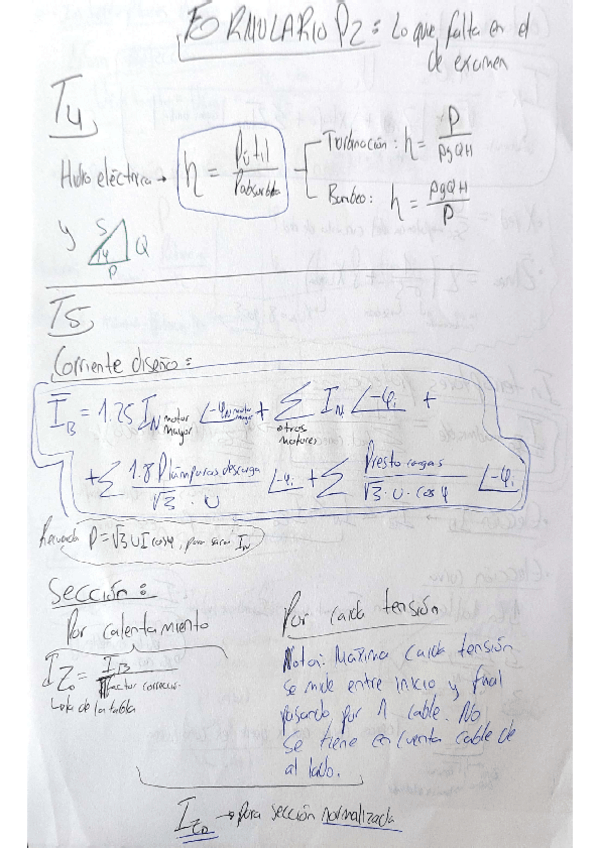 FORMULARIO P2: Lo que falta en el
de examen
T4
Hidroeléctrica → η = Pútil / Pabsorbida
Turbinación: η = P / ρgQH
Bombeo: η = ρgQH / P
y S Q P φ
T5
Corriente diseño:
I_B = 1.25 I_N motor mayor ∠-φ_N motor mayor + Σ I_N ∠-φi +
otros motores
+ Σ 1.8 P lámparas descarga / √3 · U ∠-φi + Σ P resto cargas / √3 · U · cos φ ∠-φi
Recuerda P = √3 U I cos φ, para sacar I_N
Sección:
Por calentamiento
Por caída tensión
I_Z0 = I_B / Π factor correcc.
La de la tabla
Nota: Máxima caída tensión
se mide entre inicio y final
pasando por 1 cable. No
se tiene en cuenta cable de
al lado.
I_Z0 → para sección normalizada